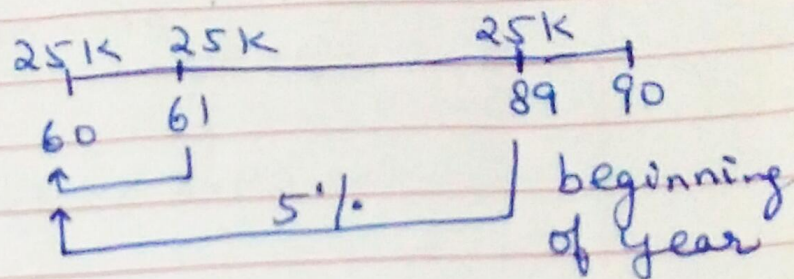 25K 25K 25K
60 61 89 90
5% beginning
of year